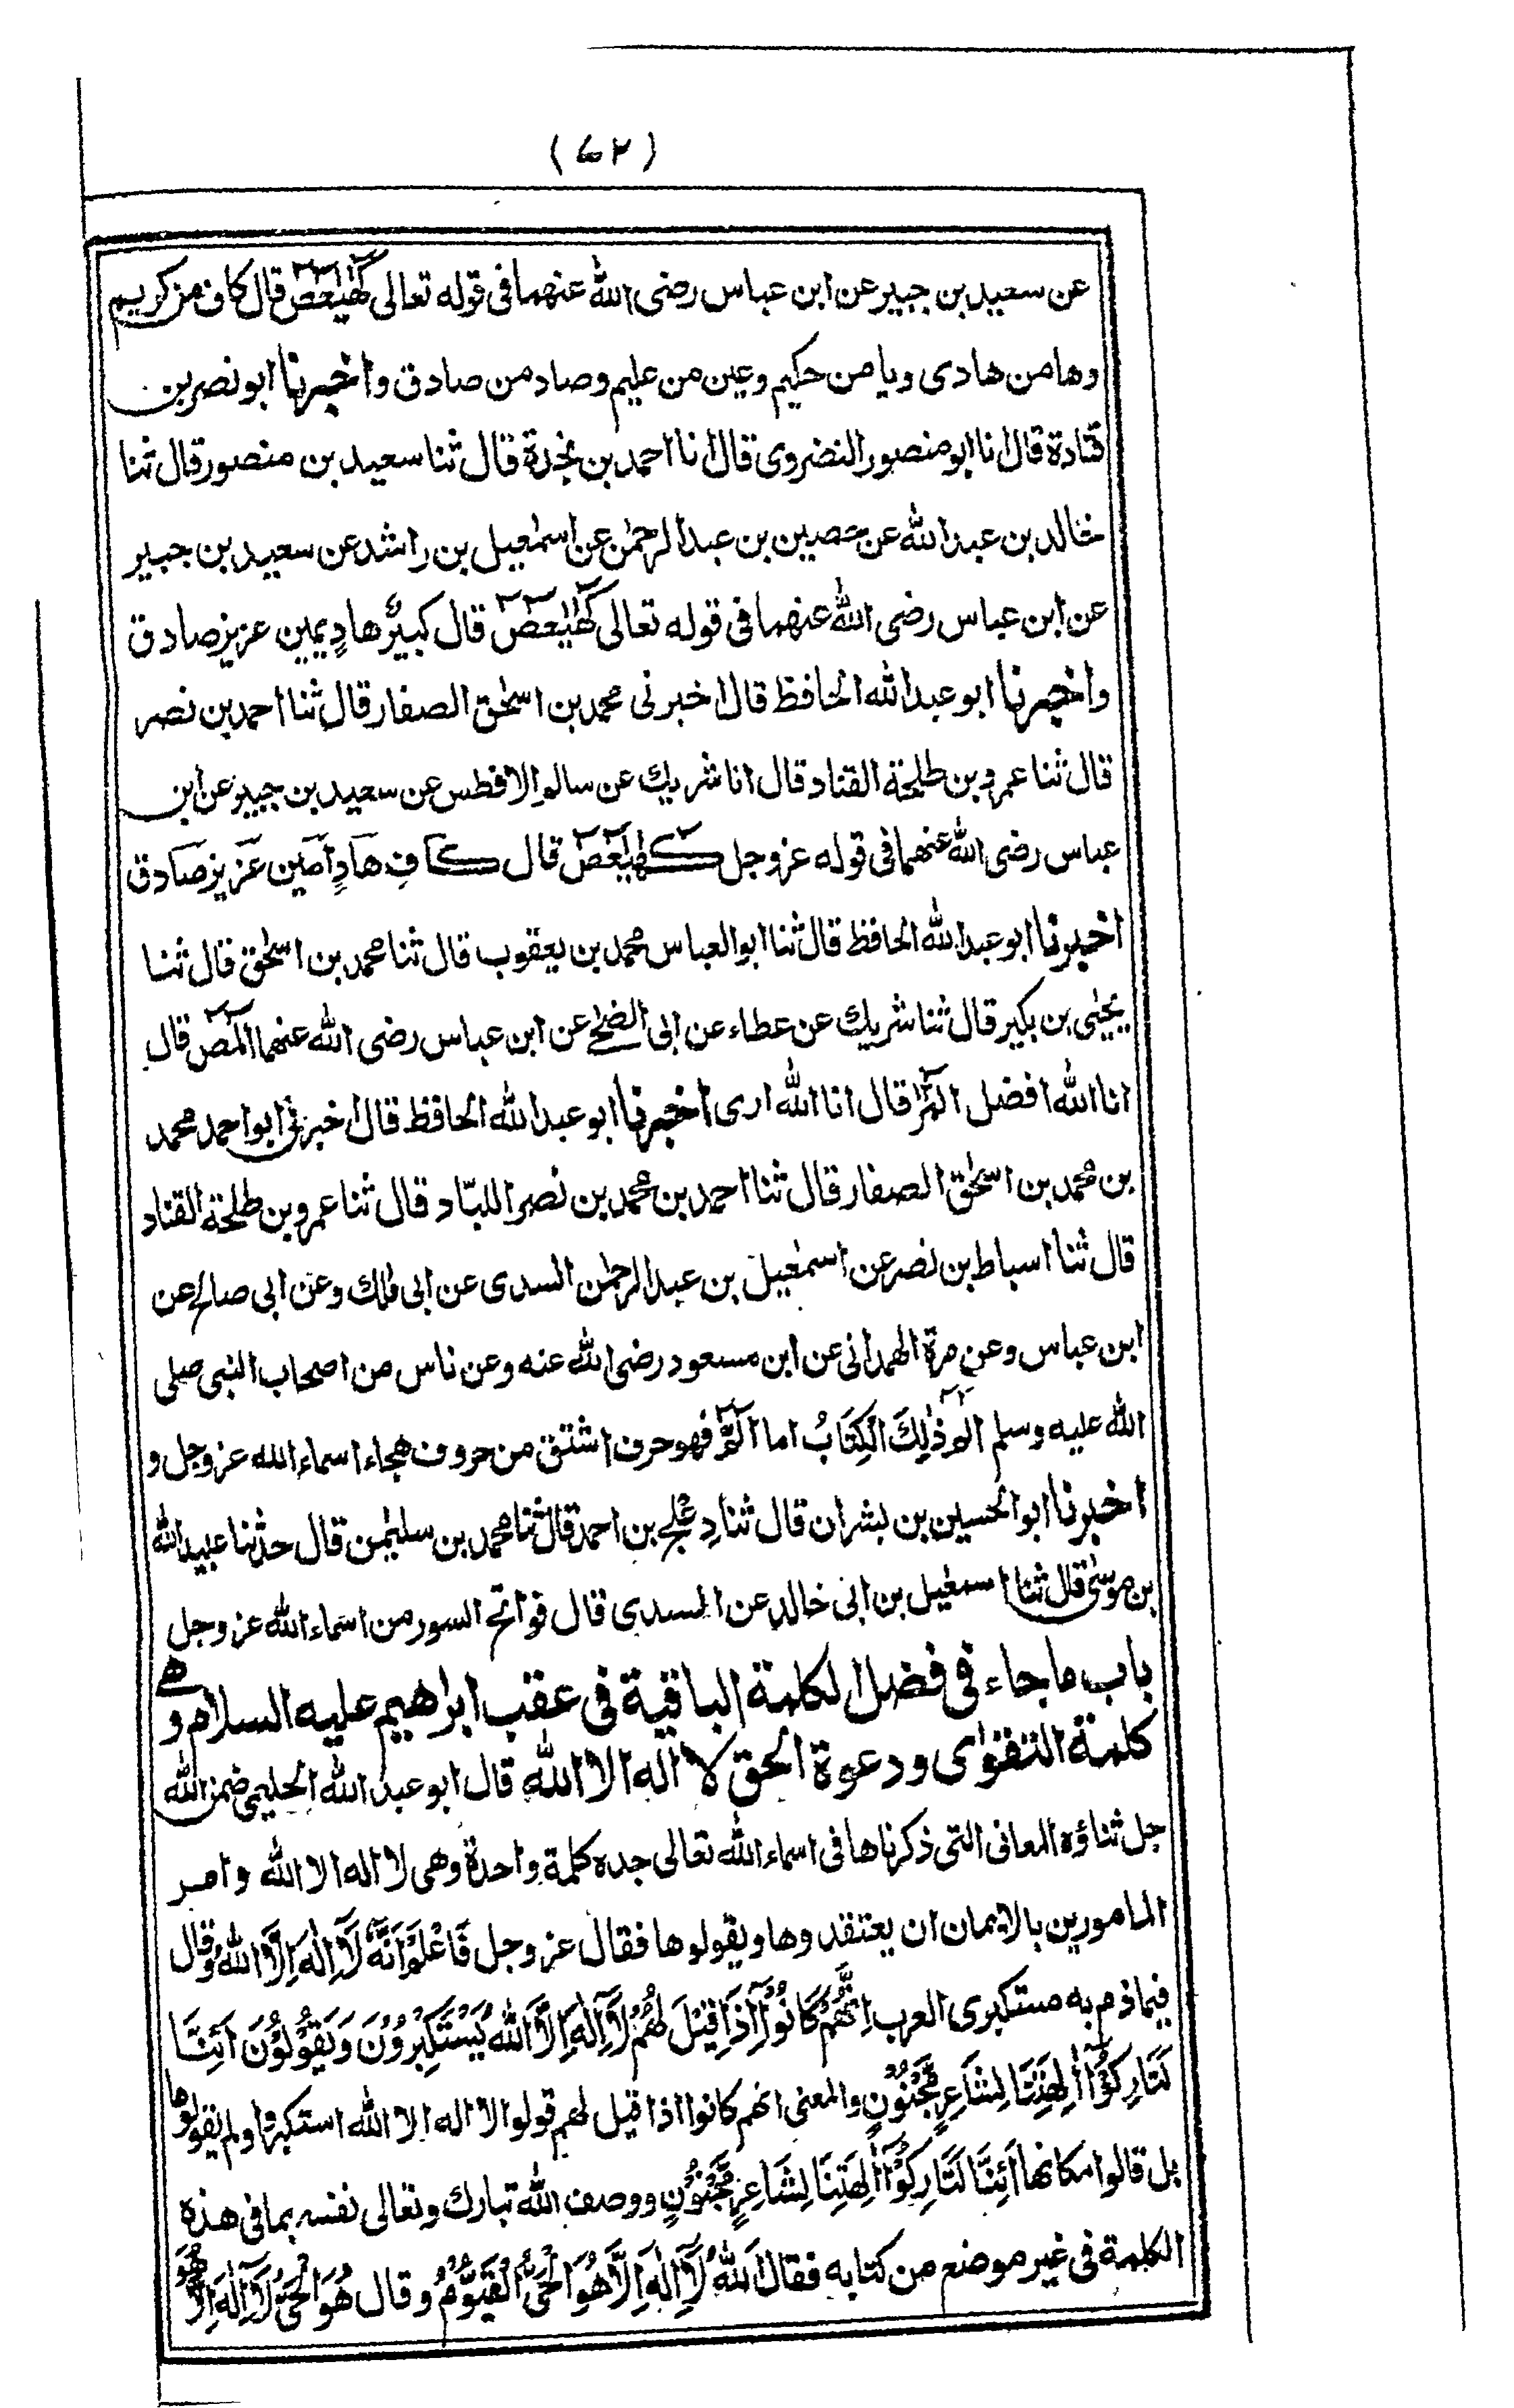 (٧٢)
عن سعيد بن جبير عن ابن عباس رضى الله عنهما فى قوله تعالى كٓهٰيٰعٓصٓ قال كاف من كريم
وها من هادى ويا من حكيم وعين من عليم وصاد من صادق واخبرنا ابو نصر بن
قتادة قال انا ابو منصور النضروى قال انا احمد بن نجدة قال ثنا سعيد بن منصور قال ثنا
خالد بن عبد الله عن حصين بن عبد الرحمٰن عن اسمٰعيل بن راشد عن سعيد بن جبير
عن ابن عباس رضى الله عنهما فى قوله تعالى كٓهٰيٰعٓصٓ قال كبيرٌ هادٍ يمين عزيز صادق
واخبرنا ابو عبد الله الحافظ قال اخبرنى محمد بن اسحٰق الصفار قال ثنا احمد بن نصر
قال ثنا عمرو بن طلحة القناد قال انا شريك عن سالم الافطس عن سعيد بن جبير عن ابن
عباس رضى الله عنهما فى قوله عز وجل كٓهٰيٰعٓصٓ قال كافٍ هَادٍ اَمين عَزيز صَادق
اخبرنا ابو عبد الله الحافظ قال ثنا ابو العباس محمد بن يعقوب قال ثنا محمد بن اسحٰق قال ثنا
يحيٰى بن بكير قال ثنا شريك عن عطاء عن ابى الضحٰى عن ابن عباس رضى الله عنهما الٓمٓصٓ قال
انا الله افضل الٓمٓرٰ قال انا الله ارى اخبرنا ابو عبد الله الحافظ قال اخبرنى ابو احمد محمد
بن محمد بن اسحٰق الصفار قال ثنا احمد بن محمد بن نصر اللبّاد قال ثنا عمرو بن طلحة القناد
قال ثنا اسباط بن نصر عن اسمٰعيل بن عبد الرحمٰن السدى عن ابى مٰلك وعن ابى صالح عن
ابن عباس وعن مرة الهمدانى عن ابن مسعود رضى الله عنه وعن ناس من اصحاب النبى صلى
الله عليه وسلم الٓمٓ ذٰلِكَ الْكِتَابُ اما الٓمٓ فهو حرف اشتق من حروف هجاء اسماء الله عز وجل و
اخبرنا ابو الحسين بن بشران قال ثنا دِعْلج بن احمد قال ثنا محمد بن سليمٰن قال حدثنا عبيد الله
بن موسٰى قال ثنا اسمٰعيل بن ابى خالد عن السدى قال فواتح السور من اسماء الله عز وجل
باب ما جاء فى فضل الكلمة الباقية فى عقب ابراهيم عليه السلام وهى
كلمة التقوٰى ودعوة الحق لا اله الا الله قال ابو عبد الله الحليمى ضمن الله
جل ثناؤه المعانى التى ذكرناها فى اسماء الله تعالى جده كلمة واحدة وهى لا اله الا الله وامر
المامورين بالايمان ان يعتقدوها ويقولوها فقال عز وجل فَاعْلَمْ اَنَّهٗ لَآ اِلٰهَ اِلَّا اللهُ وقال
فيما ذم به مستكبرى العرب اِنَّهُمْ كَانُوْٓا اِذَا قِيْلَ لَهُمْ لَآ اِلٰهَ اِلَّا اللهُ يَسْتَكْبِرُوْنَ وَيَقُوْلُوْنَ اَئِنَّا
لَتَارِكُوْٓا اٰلِهَتِنَا لِشَاعِرٍ مَّجْنُوْنٍ والمعنى انهم كانوا اذا قيل لهم قولوا لا اله الا الله استكبروا ولم يقولوها
بل قالوا مكانها اَئِنَّا لَتَارِكُوْٓا اٰلِهَتِنَا لِشَاعِرٍ مَّجْنُوْنٍ ووصف الله تبارك وتعالى نفسه بما فى هذه
الكلمة فى غير موضع من كتابه فقال اَللهُ لَآ اِلٰهَ اِلَّا هُوَ الْحَىُّ الْقَيُّوْمُ وقال هُوَ الْحَىُّ لَآ اِلٰهَ اِلَّا هُوَ